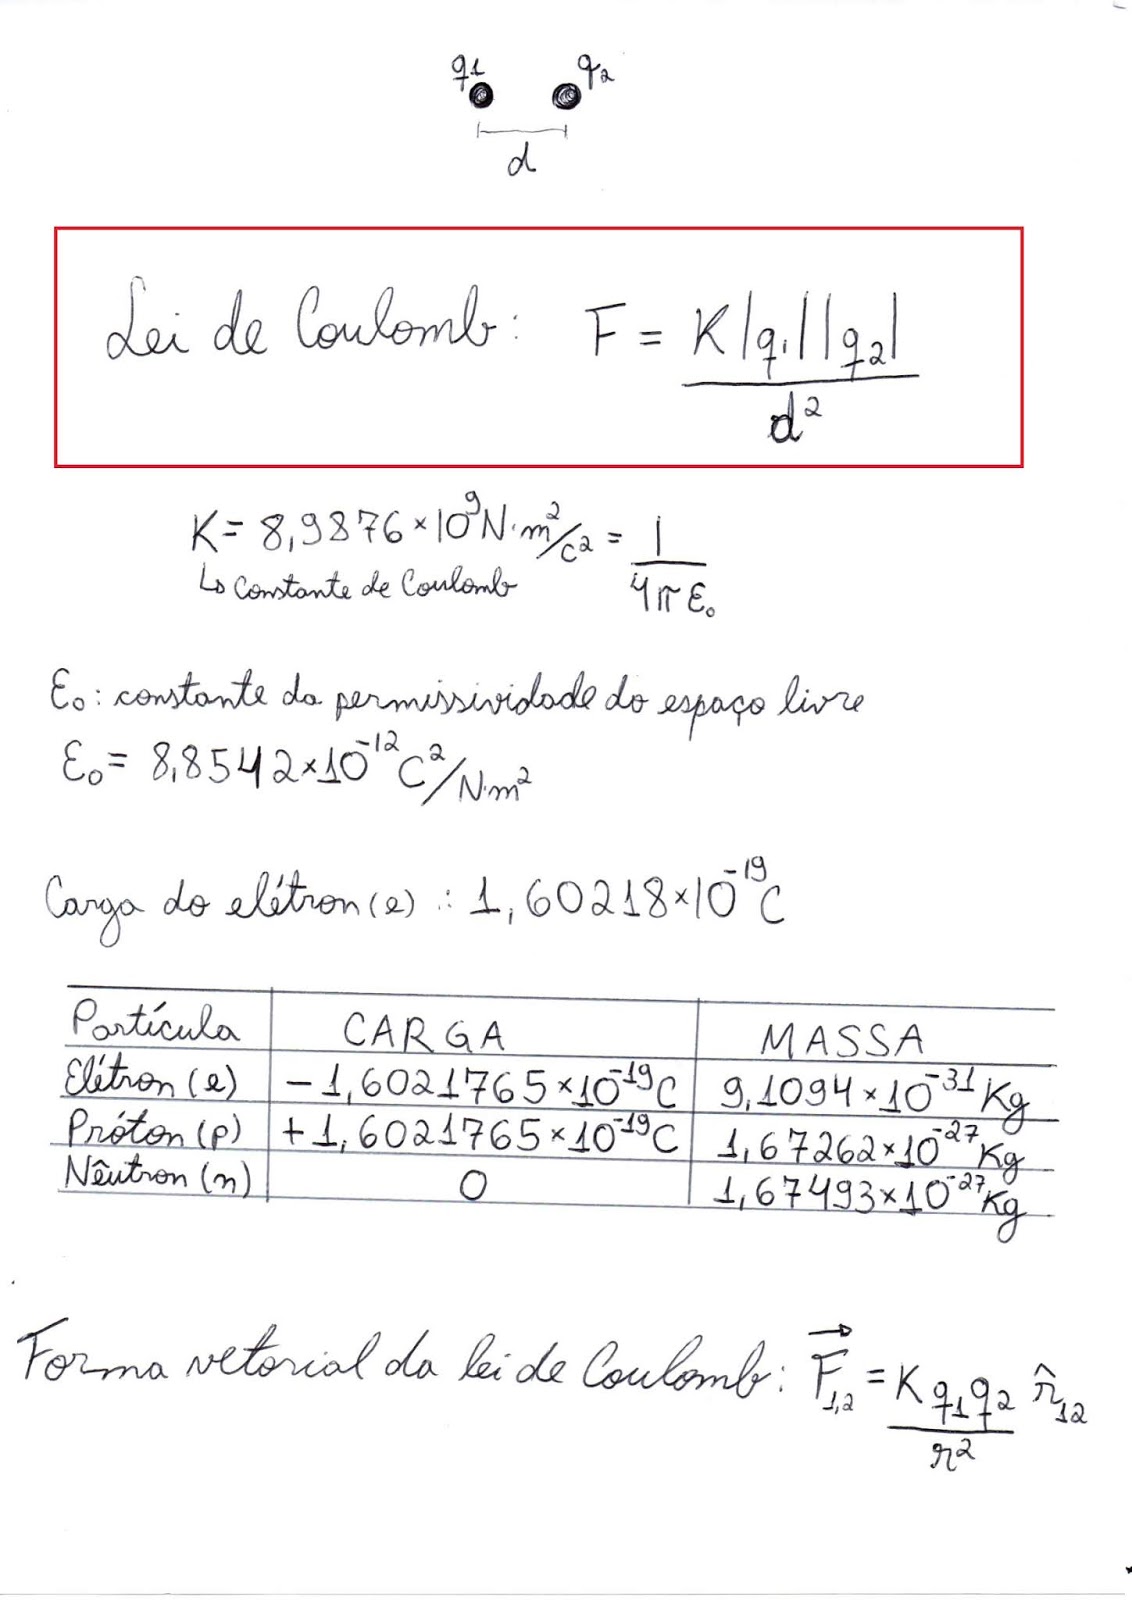 q1 q2
d
Lei de Coulomb: F = K|q1||q2| / d²
K = 8,9876 × 10⁹ N·m²/C² = 1 / 4πε₀
↳ Constante de Coulomb
ε₀: constante da permissividade do espaço livre
ε₀ = 8,8542×10⁻¹² C²/N·m²
Carga do elétron (e) ∴ 1,60218×10⁻¹⁹ C
Partícula CARGA MASSA
Elétron (e) −1,6021765×10⁻¹⁹ C 9,1094×10⁻³¹ Kg
Próton (p) +1,6021765×10⁻¹⁹ C 1,67262×10⁻²⁷ Kg
Nêutron (n) 0 1,67493×10⁻²⁷ Kg
Forma vetorial da lei de Coulomb: F⃗₁,₂ = K q₁q₂ / r² r̂₁₂